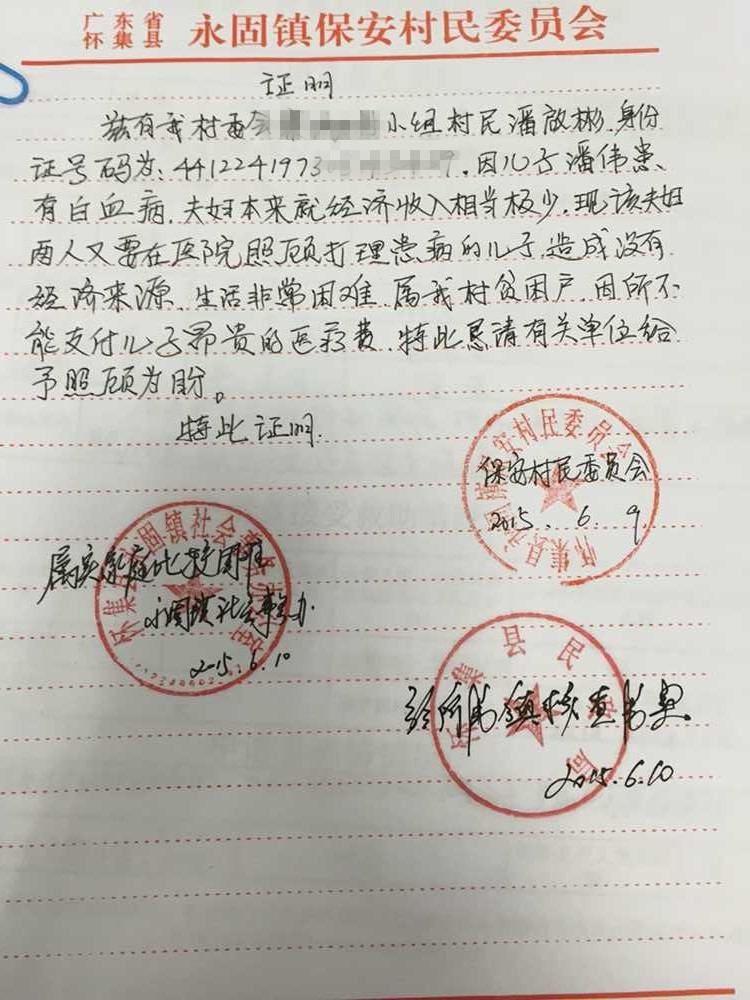 广东省
怀集县
永固镇保安村民委员会
证明
兹有我村委会小组村民潘啟彬,身份
证号码为:4412241973,因儿子潘伟患
有白血病,夫妇本来就经济收入相当极少,现该夫妇
两人又要在医院照顾打理患病的儿子,造成没有
经济来源,生活非常困难,属我村贫困户,因所不
能支付儿子昂贵的医疗费,特此恳请有关单位给
予照顾为盼。
特此证明.
怀集县永固镇保安村民委员会
保安村民委员会
2015.6.9
怀集县永固镇社会事务办公室
属实家庭比较困难
永固镇社会事务办
2015.6.10
怀集县民政局
经所属镇核查书实
2015.6.10